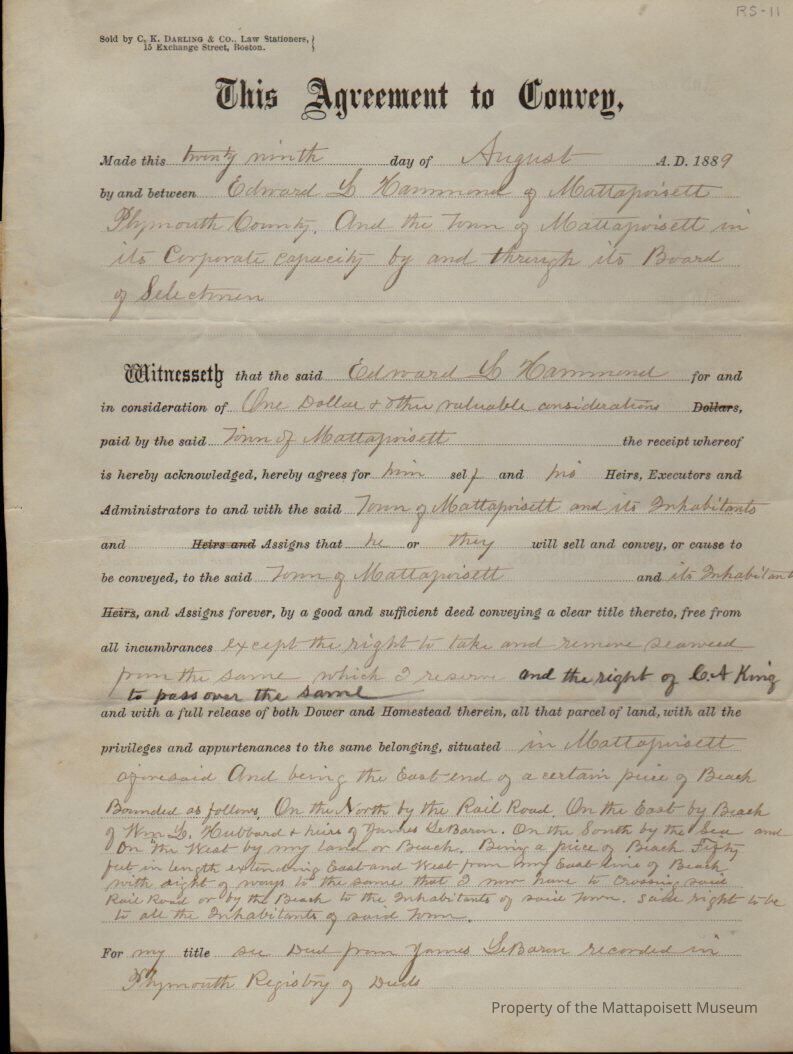 RS-11
Sold by C. K. DARLING & CO., Law Stationers,
15 Exchange Street, Boston.
This Agreement to Convey,
Made this twenty ninth day of August A.D. 1889
by and between Edward L Hammond of Mattapoisett
Plymouth County. And the Town of Mattapoisett in
its Corporate capacity by and through its Board
of Selectmen
Witnesseth that the said Edward L Hammond for and
in consideration of One Dollar & other valuable considerations Dollars,
paid by the said Town of Mattapoisett the receipt whereof
is hereby acknowledged, hereby agrees for him self and his Heirs, Executors and
Administrators to and with the said Town of Mattapoisett and its Inhabitants
and Heirs and Assigns that he or they will sell and convey, or cause to
be conveyed, to the said Town of Mattapoisett and its Inhabitant
Heirs, and Assigns forever, by a good and sufficient deed conveying a clear title thereto, free from
all incumbrances except the right to take and remove seaweed
from the same which I reserve and the right of C. A King
to pass over the same
and with a full release of both Dower and Homestead therein, all that parcel of land, with all the
privileges and appurtenances to the same belonging, situated in Mattapoisett
aforesaid And being the East end of a certain piece of Beach
Bounded as follows. On the North by the Rail Road. On the East by Beach
of Wm L. Hubbard & heirs of James LeBaron. On the South by the Sea and
On the West by my land or Beach. Being a piece of Beach Fifty
feet in length extending East and West from my East line of Beach
with right of ways to the same that I now have to Crossing said
Rail Road or by the Beach to the Inhabitants of said Town. Said right to be
to all the Inhabitants of said Town.
For my title see Deed from James LeBaron recorded in
Plymouth Registry of Deeds
Property of the Mattapoisett Museum